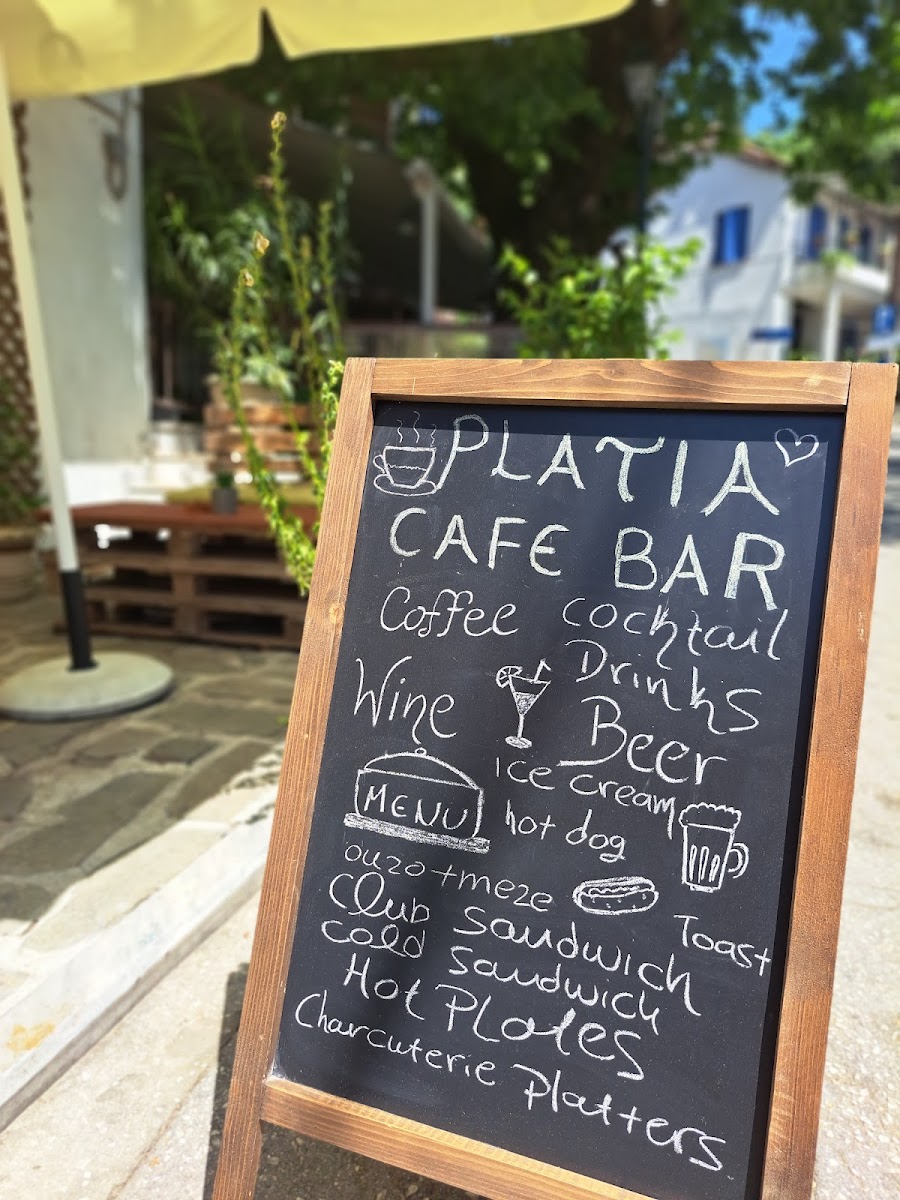 PLATIA
CAFE BAR
Coffee cocktail
Drinks
Wine
Beer
ice cream
MENU
hot dog
ouzo+meze
Toast
Club sandwich
cold sandwich
Hot Plates
Charcuterie platters